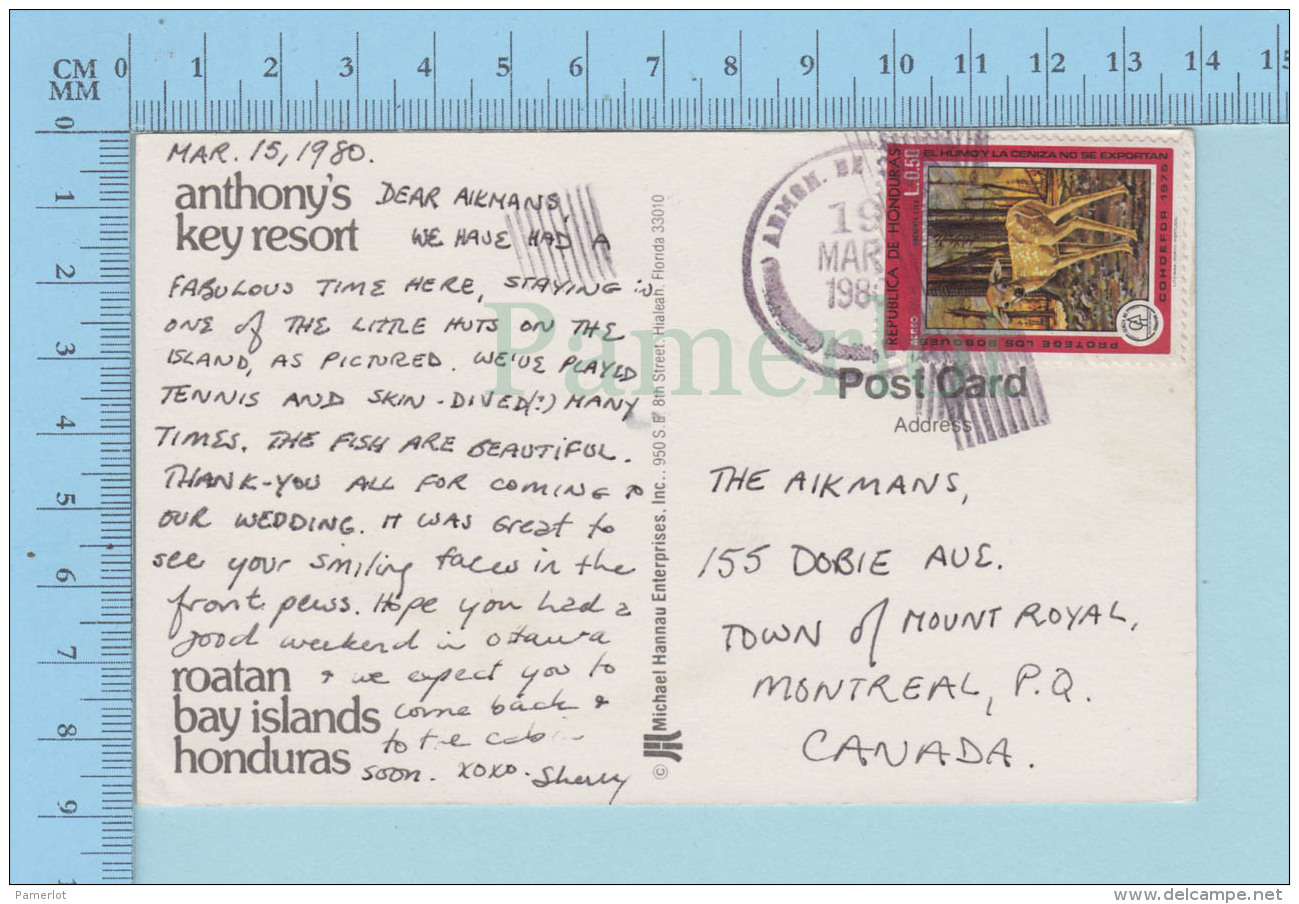 CM 0 1 2 3 4 5 6 7 8 9 10 11 12 13 14 15
MM
0
1
2
3
4
5
6
7
8
9
MAR. 15, 1980.
anthony's
key resort
DEAR AIKMANS,
WE HAVE HAD A
FABULOUS TIME HERE, STAYING in
ONE of THE LITTLE HUTS ON THE
ISLAND, AS PICTURED. WE'VE PLAYED
TENNIS AND SKIN-DIVED(!) MANY
TIMES. THE FISH ARE BEAUTIFUL.
THANK-YOU ALL FOR COMING to
OUR WEDDING. IT WAS Great to
see your smiling faces in the
front pews. Hope you had a
good weekend in Ottawa
roatan
bay islands
honduras
+ we expect you to
come back +
to the cabin
soon. XOXO. Sherry
© Michael Hannau Enterprises, Inc., 950 S.E. 8th Street, Hialeah, Florida 33010
ADMON. DE
19
MAR
198
REPUBLICA DE HONDURAS L.0.50
EL HUMO Y LA CENIZA NO SE EXPORTAN
COHDEFOR 1976
PROTEGE LOS BOSQUES
AEREO
Post Card
Address
THE AIKMANS,
155 DOBIE AVE.
TOWN of MOUNT ROYAL,
MONTREAL, P.Q.
CANADA.
Pamerlot
Pamerlot
www.delcampe.net